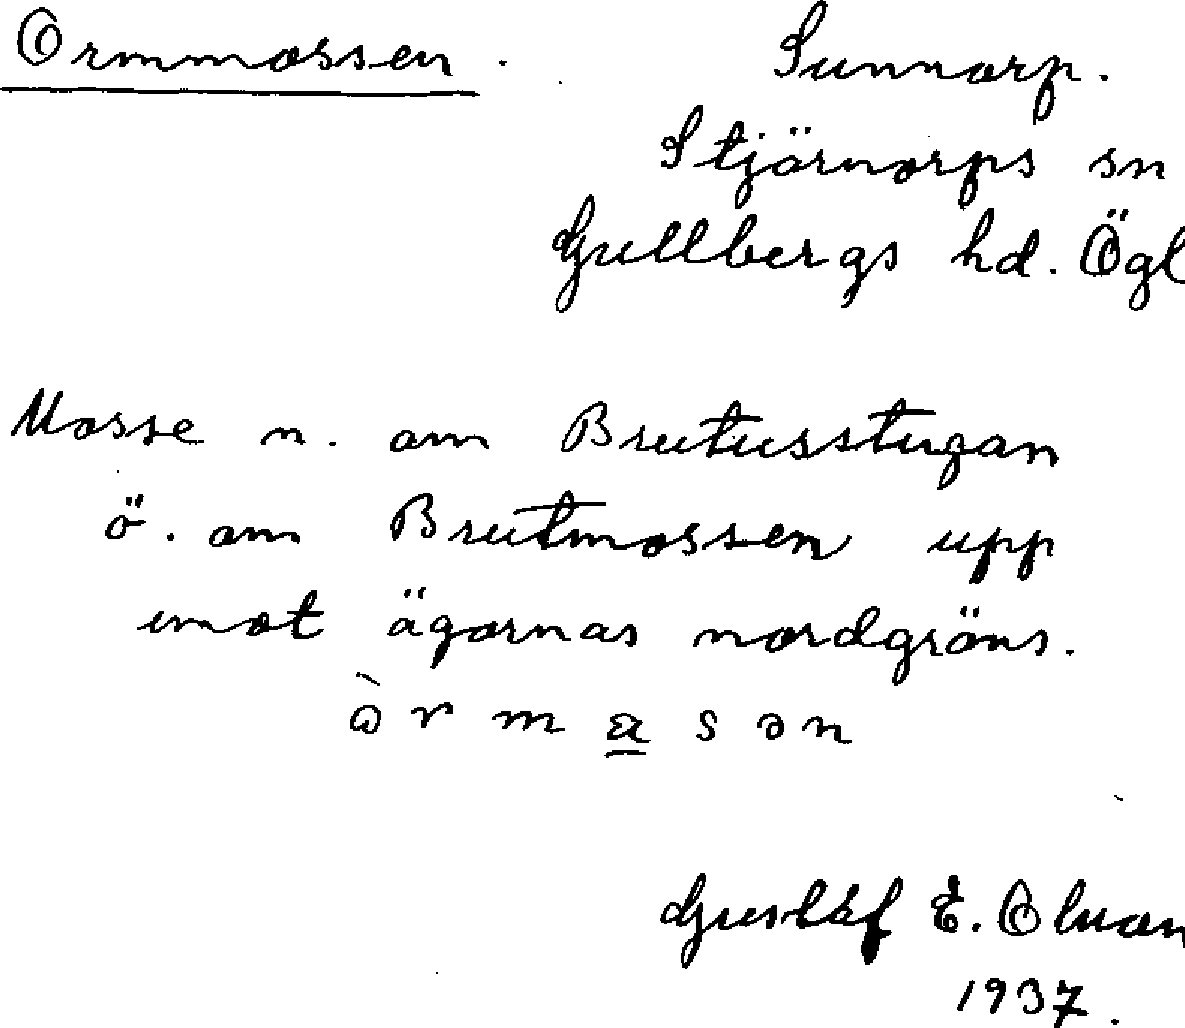 Ormmossen. Sunnorp.
Stjärnorps sn
Gullbergs hd. Ögl
Mosse n. om Brutusstugan
ö. om Brutmossen upp
emot ägornas nordgräns.
Gustaf E.
1937.